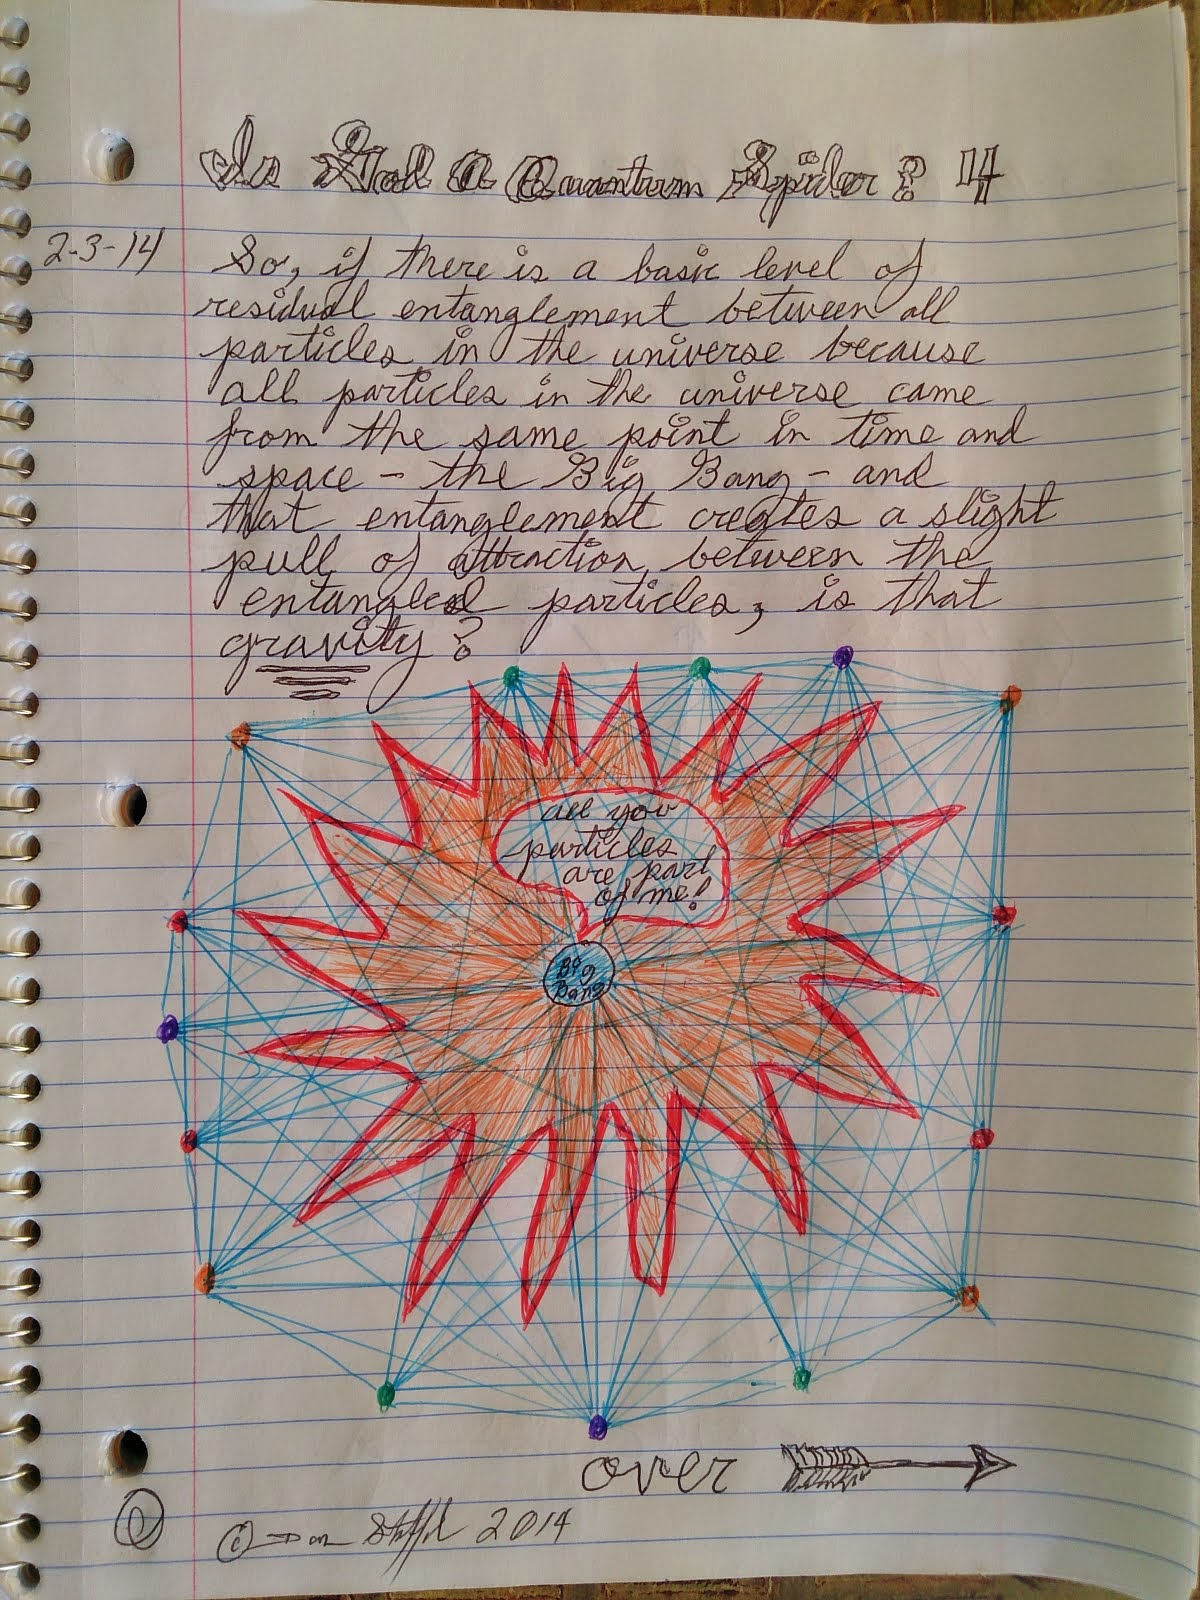 Is God A Quantum Spider? 4
2-3-14
So, if there is a basic level of
residual entanglement between all
particles in the universe because
all particles in the universe came
from the same point in time and
space - the Big Bang - and
that entanglement creates a slight
pull of attraction between the
entangled particles, is that
gravity?
all you
particles
are part
of me!
Big
Bang
over
© 2014